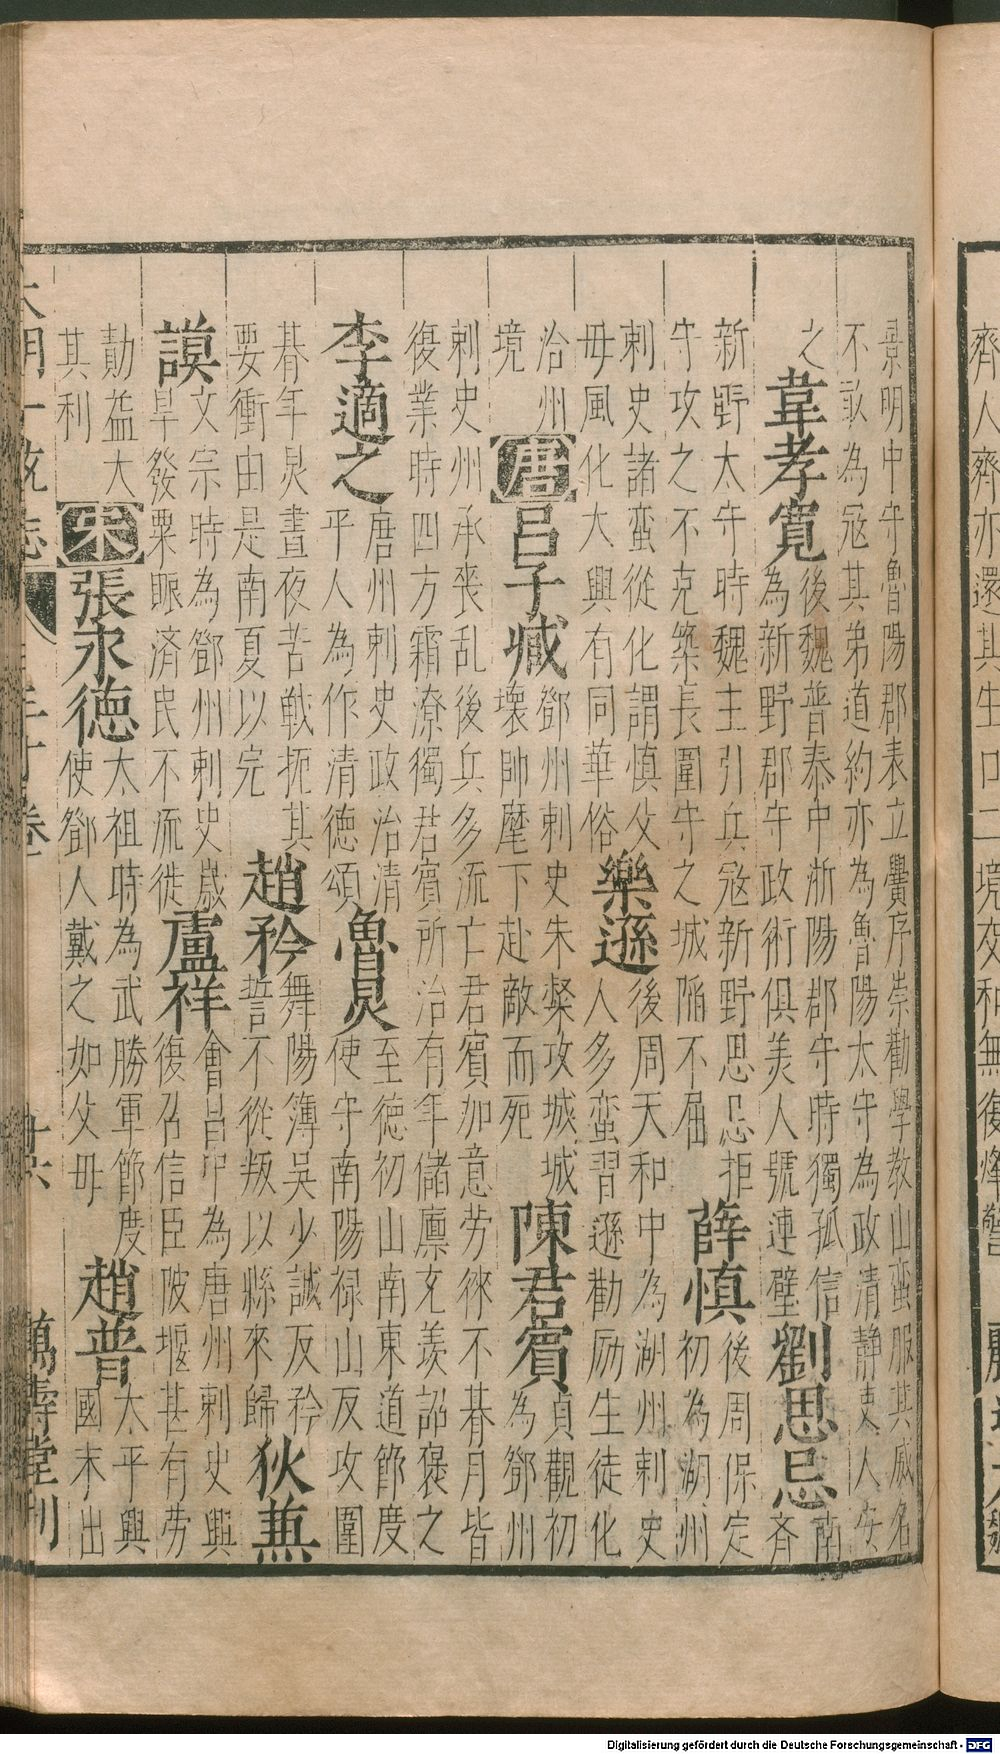 景明中守魯陽郡表立黌序崇勸學教山蠻服其威名
不敢為寇其弟道約亦為魯陽太守為政清靜吏人安
之
韋孝寬
後魏普泰中淅陽郡守時獨孤信
為新野郡守政術俱美人號連璧
劉思忌
南
齊
新野太守時魏主引兵寇新野思忌拒
守攻之不克築長圍守之城陷不屈
薛慎
後周保定
初為湖州
刺史諸蛮從化謂慎父
母風化大興有同華俗
樂遜
後周天和中為湖州刺史
人多蛮習遜勸励生徒化
洽州
境
唐
呂子臧
鄧州刺史朱粲攻城城
壞帥麾下赴敵而死
陳君賓
貞觀初
為鄧州
刺史州承喪乱後兵多流亡君賓加意劳徠不朞月皆
復業時四方霜潦獨君賓所治有年儲廪充羡詔褒之
李適之
唐州刺史政治清
平人為作清德頌
魯炅
至德初山南東道節度
使守南陽禄山反攻圍
朞年炅晝夜苦戰扼其
要衝由是南夏以完
趙矜
舞陽簿吳少誠反矜
誓不從叛以縣來歸
狄兼
謨
文宗時為鄧州刺史歲
旱發粟賑済民不流徙
盧祥
會昌中為唐州刺史興
復召信臣陂堰甚有劳
勣益大
其利
宋
張永德
太祖時為武勝軍節度
使鄧人戴之如父母
趙普
太平興
國末出
大明一統志
三十卷
廿六
萬壽堂刊
齊人齊亦還其生口二境交和無復烽警
Digitalisierung gefördert durch die Deutsche Forschungsgemeinschaft - DFG